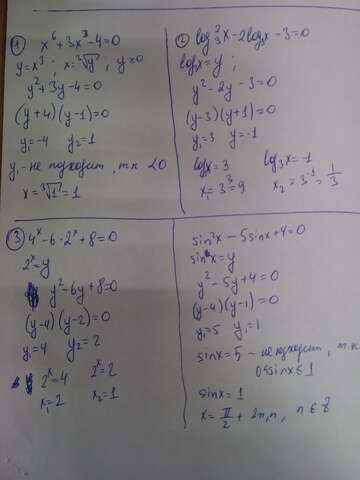 ① x⁶+3x³-4=0
y=x³; x=∛y, y≥0
y²+3y-4=0
(y+4)(y-1)=0
y=-4 y₂=1
y₁ - не подходит, т.к <0
x=∛1=1
② log₃²x-2log₃x-3=0
log₃x=y;
y²-2y-3=0
(y-3)(y+1)=0
y₁=3 y=-1
log₃x=3 log₃x=-1
x₁=3³=9 x₂=3⁻¹=1/3
③ 4ˣ-6·2ˣ+8=0
2ˣ=y
y²-6y+8=0
(y-4)(y-2)=0
y₁=4 y₂=2
2ˣ=4 2ˣ=2
x₁=2 x₂=1
sin²x-5sinx+4=0
sinx=y
y²-5y+4=0
(y-4)(y-1)=0
y₁=5 y₁=1
sinx=5 - не подходит, т.к
0≤sinx≤1
sinx=1
x=π/2+2πn, n∈Z